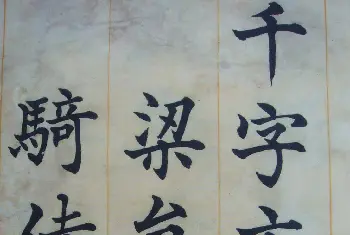 千字文
梁員
騎侍